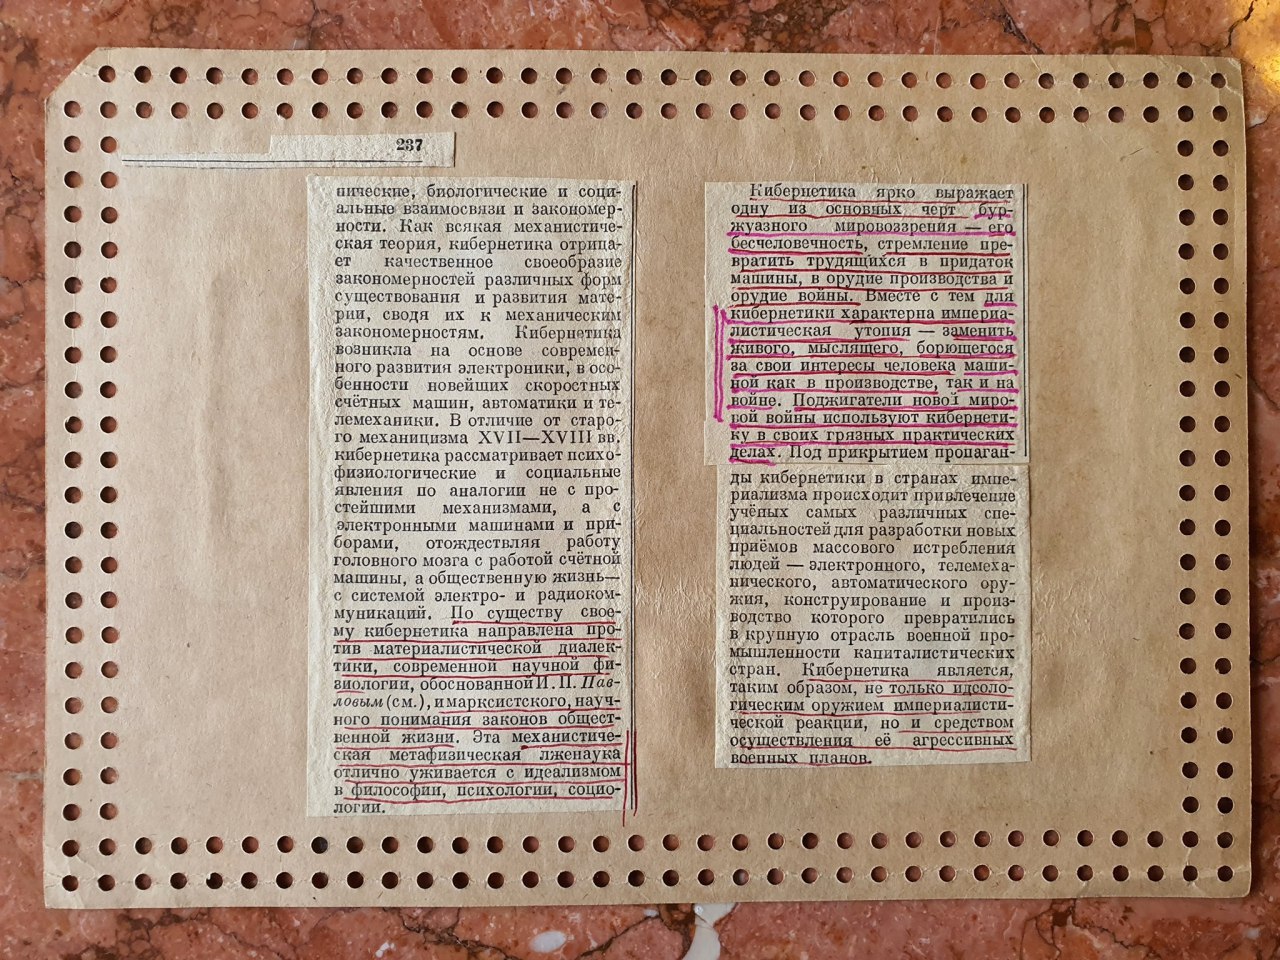 237
нические, биологические и соци-
альные взаимосвязи и закономер-
ности. Как всякая механистиче-
ская теория, кибернетика отрица-
ет качественное своеобразие
закономерностей различных форм
существования и развития мате-
рии, сводя их к механическим
закономерностям. Кибернетика
возникла на основе современ-
ного развития электроники, в осо-
бенности новейших скоростных
счётных машин, автоматики и те-
лемеханики. В отличие от старо-
го механицизма XVII—XVIII вв.
кибернетика рассматривает психо-
физиологические и социальные
явления по аналогии не с про-
стейшими механизмами, а с
электронными машинами и при-
борами, отождествляя работу
головного мозга с работой счётной
машины, а общественную жизнь—
с системой электро- и радиоком-
муникаций. По существу свое-
му кибернетика направлена про-
тив материалистической диалек-
тики, современной научной фи-
зиологии, обоснованной И. П. Пав-
ловым (см.), и марксистского, науч-
ного понимания законов общест-
венной жизни. Эта механистиче-
ская метафизическая лженаука
отлично уживается с идеализмом
в философии, психологии, социо-
логии.
Кибернетика ярко выражает
одну из основных черт бур-
жуазного мировоззрения — его
бесчеловечность, стремление пре-
вратить трудящихся в придаток
машины, в орудие производства и
орудие войны. Вместе с тем для
кибернетики характерна импери-
алистическая утопия — заменить
живого, мыслящего, борющегося
за свои интересы человека маши-
ной как в производстве, так и на
войне. Поджигатели новой миро-
вой войны используют кибернети-
ку в своих грязных практических
делах. Под прикрытием пропаган-
ды кибернетики в странах импе-
риализма происходит привлечение
учёных самых различных спе-
циальностей для разработки новых
приёмов массового истребления
людей — электронного, телемеха-
нического, автоматического ору-
жия, конструирование и произ-
водство которого превратились
в крупную отрасль военной про-
мышленности капиталистических
стран. Кибернетика является,
таким образом, не только идеоло-
гическим оружием империалисти-
ческой реакции, но и средством
осуществления её агрессивных
военных планов.